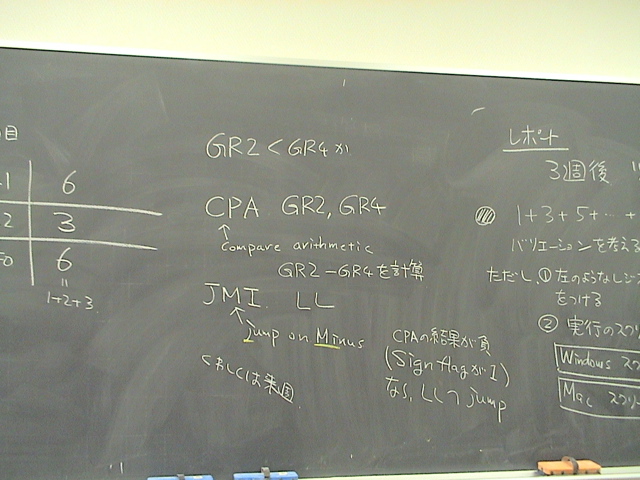 目
1 6
2 3
6
=
1+2+3
GR2 < GR4か
CPA GR2, GR4
↑
compare arithmetic
GR2-GR4を計算
JMI LL
↑
jump on Minus
くわしくは来週
CPAの結果が負
(Sign flagが1)
なら, LLへjump
レポート
3週後
1+3+5+…+
バリエーションを考える
ただし, ①左のようなレジス
をつける
② 実行のスクリ
Windows スク
Mac スクリー